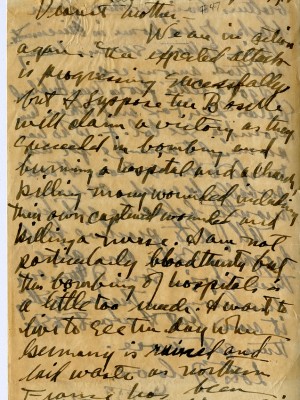 Dearest Mother - #47
We are in action
again. The expected attack
is progressing successfully
but I suppose the Bosche
will claim a victory as they
succeeded in bombing and
burning a hospital and already
killing many wounded including
their own captured wounded and
killing a nurse. I am not
particularly bloodthirsty but
this bombing of hospitals is
a little too much. I want to
live to see the day when
Germany is ruined and
laid waste as northern
France has been